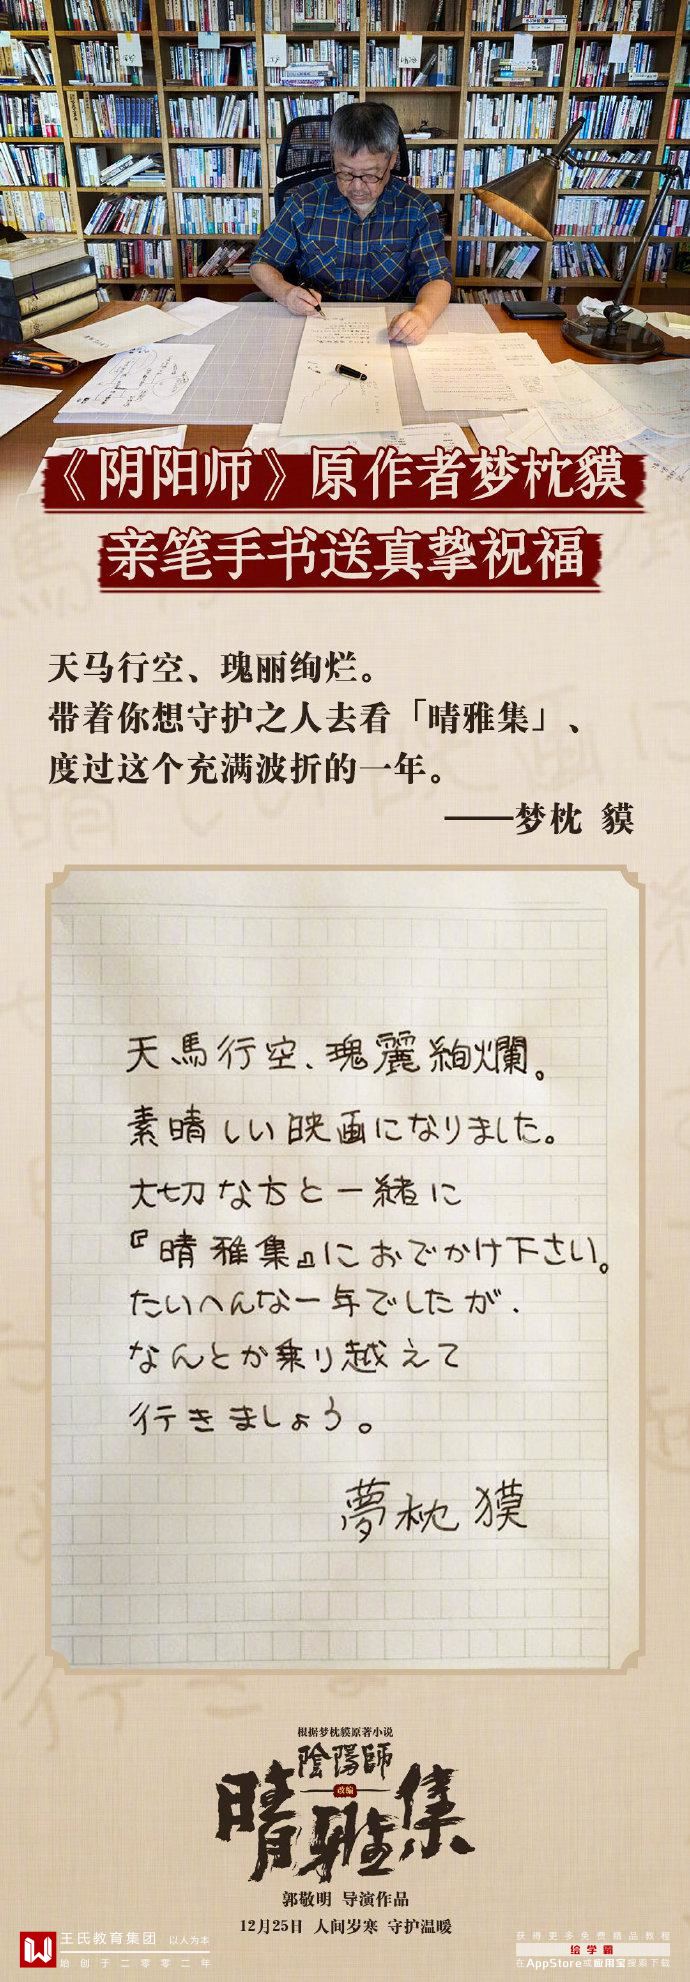 《阴阳师》原作者梦枕貘
亲笔手书送真挚祝福
天马行空、瑰丽绚烂。
带着你想守护之人去看「晴雅集」、
度过这个充满波折的一年。
——梦枕 貘
天馬行空、瑰麗絢爛。
素晴しい映画になりました。
大切な方と一緒に
『晴雅集』におでかけ下さい。
たいへんな一年でしたが、
なんとか乗り越えて
行きましょう。
夢枕 獏
根据梦枕貘原著小说
陰陽師
改编
晴雅集
郭敬明 导演作品
12月25日 人间岁寒 守护温暖
王氏教育集团 以人为本
始创于二零零二年
获得更多免费精品教程
绘学霸
在AppStore或应用宝搜索下载